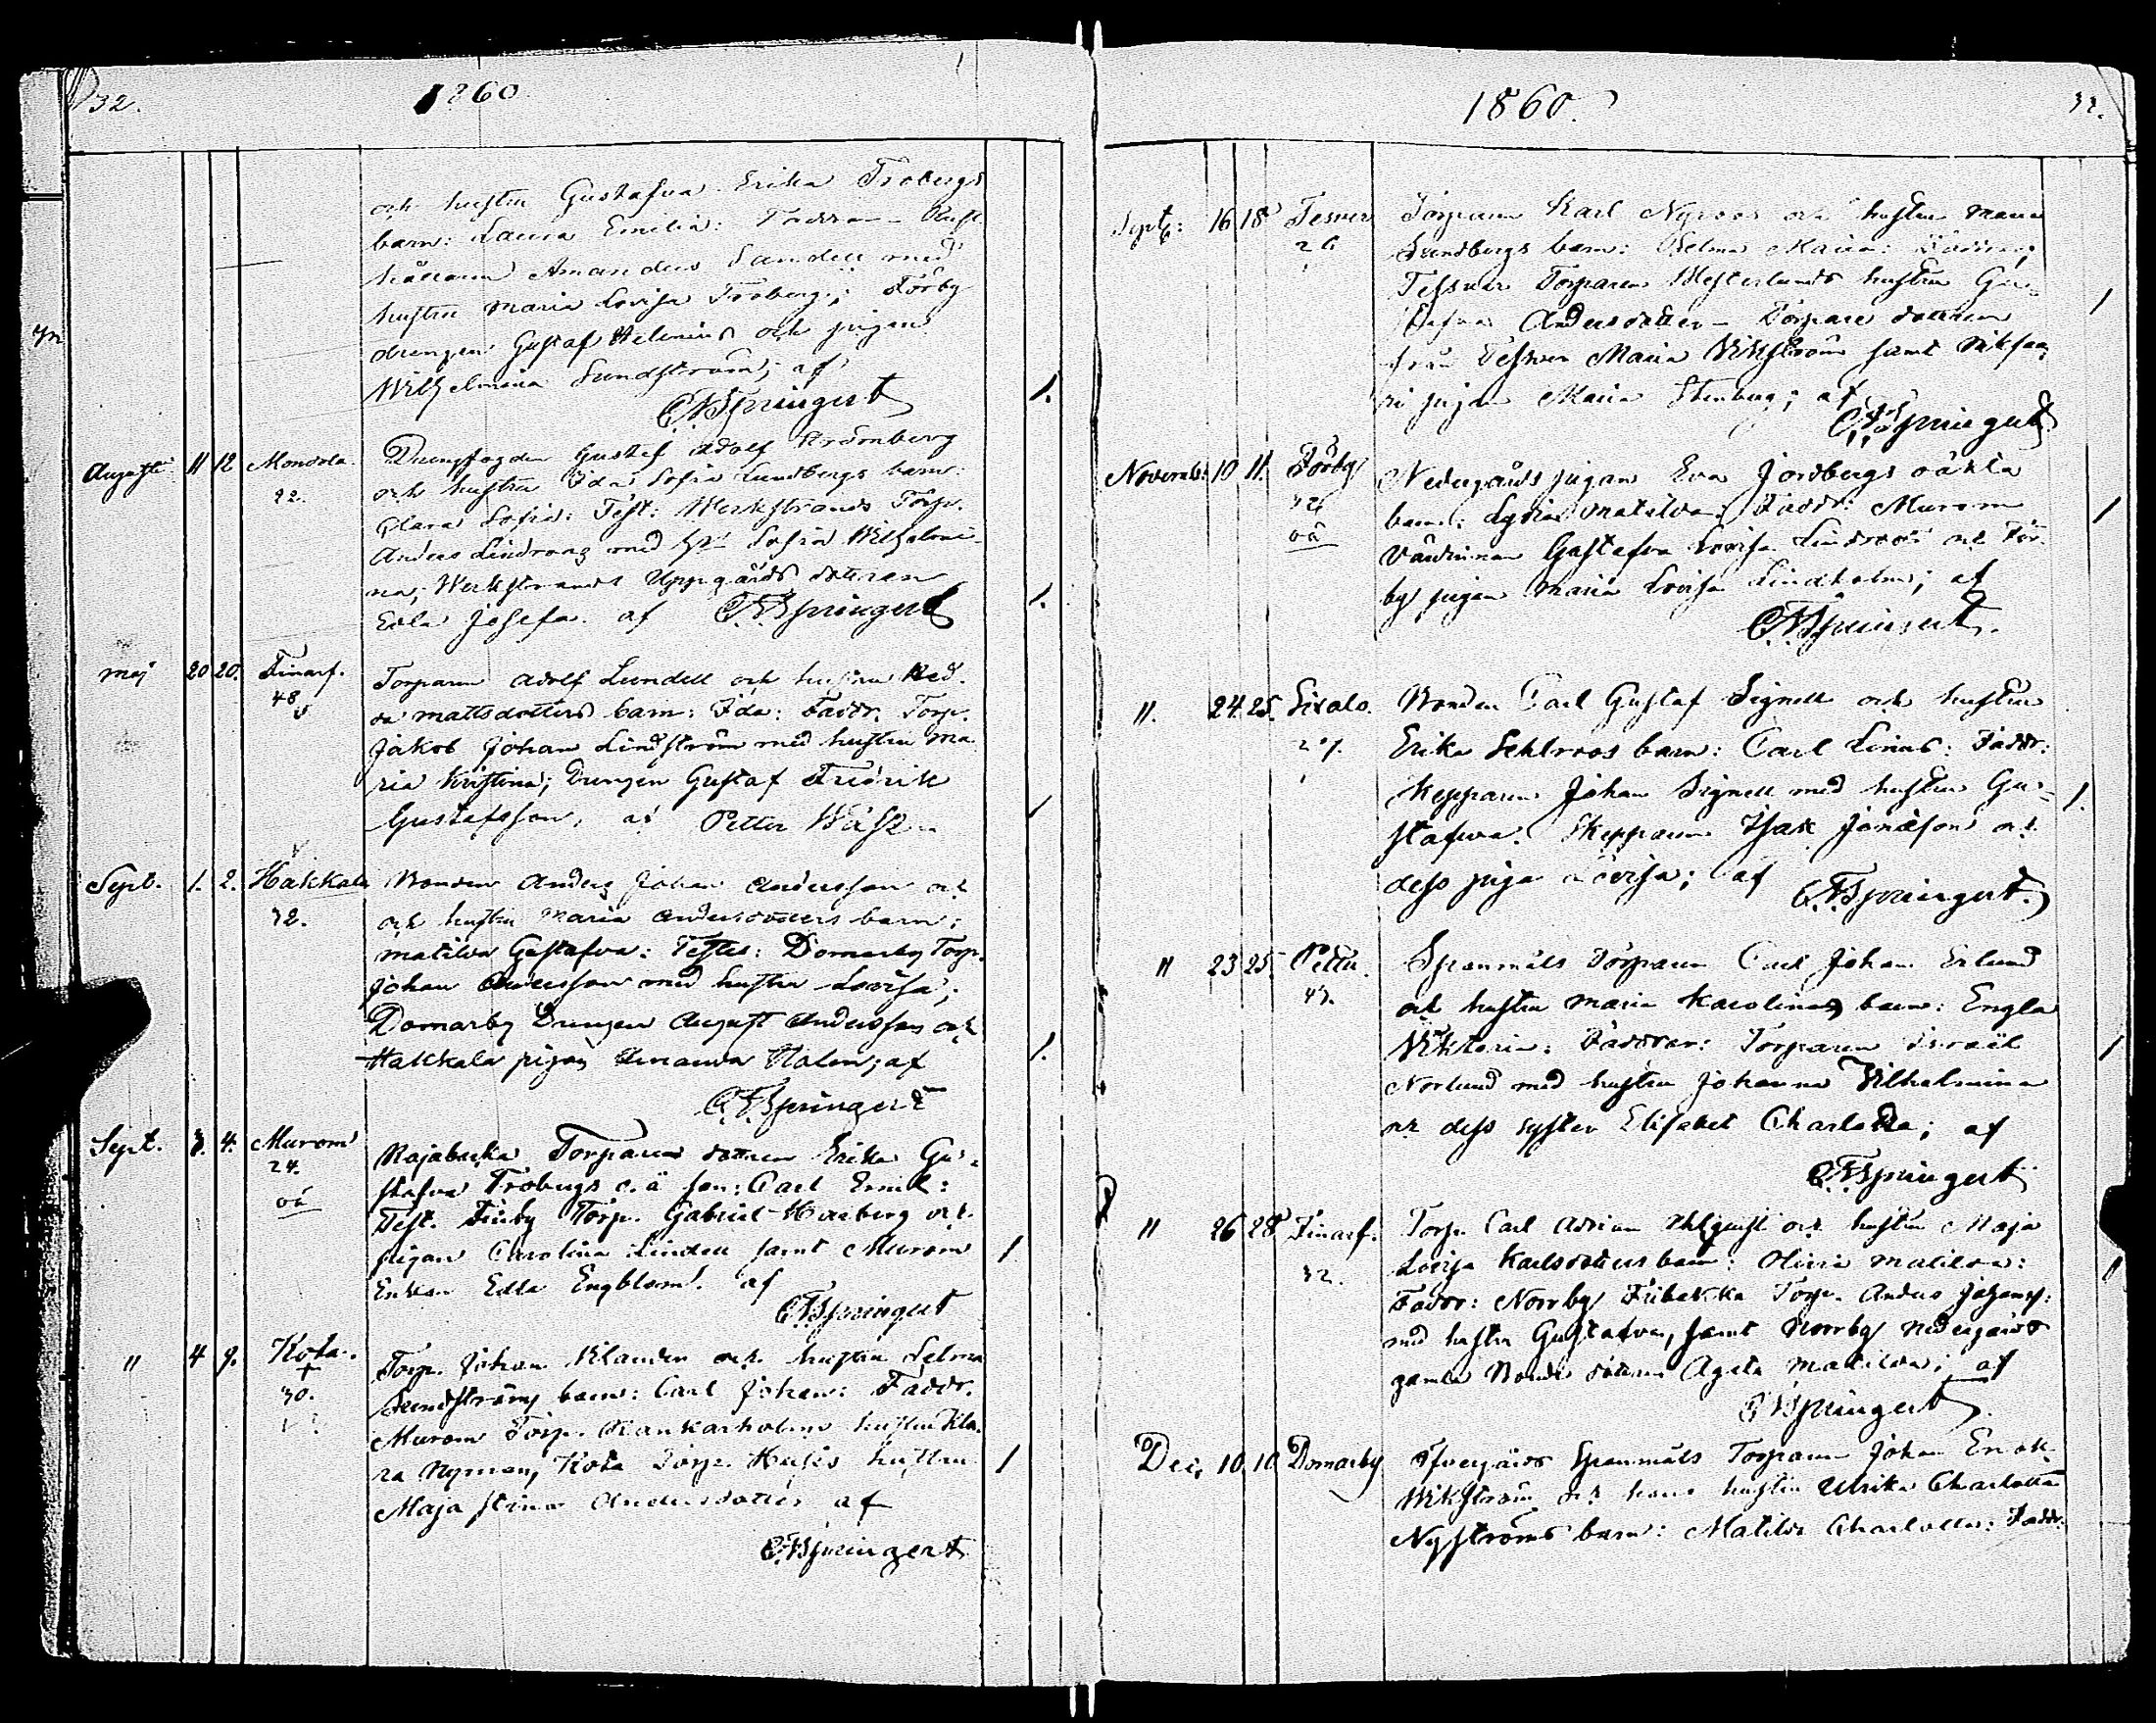 32.
1860
och hustru Gustafva Erika Trobergs
barn: Laura Emilia:
Amandus Sandell med
hustru Maria Lovisa Troberg; Förby
drengen Gustaf Helenius och pigan
Wilhelmina Sundström; af
Springert
1.
Augusti 11 12 Mondola Gustaf Adolf Strömberg
och hustru Ida Sofia Lundbergs barn:
Clara Sofia: Test: Werkstrands Torp.
Anders Lindroos med Sofia Wilhelmi-
na; Werkstrands Uppgårds dottren
Edla Josefa. af Springert
1.
maj 20 20. Finarf. Torparen Adolf Lundell och hustru Hed-
48
da Mattsdotters barn: Ida: Faddr. Torp.
Jakob Johan Lindström med hustru Ma-
ria Kristina; Drengen Gustaf Fredrik
Gustafsson, af Petter
1
Sept. 1. 2. Hakkala Bonden Anders Johan Andersson och
32.
och hustru Maria Andersdotters barn:
Matilda Gustafva: Testes: Domarby Torp.
Johan Andersson med hustru Lovisa;
Domarby Drengen August Andersson och
Hakkala pigan Amanda Holm; af
1.
Springert
Sept. 3. 4. Murom Rajabacka Torparen dottren Erika Gu-
24.
oä
stafva Trobergs o.ä son: Carl Emil:
Test. Finby Torp. Gabriel och
pigan Carolina Lindell samt Murom
1
Enkan Edla Engblom. af
Springert
" 4 9. Kota. Torp. Johan och hustru Selma
30.
Sundströms barn: Carl Johan: Faddr.
Murom Torp. hustru Kla-
ra Nyman, Kota Torp. hustru
1
Maja Stina Andersdotter af
Springert
1860.
Sept: 16 18 Tesver Torparen Karl Nyroos och hustru Maria
26
Sundbergs barn: Selma Maria: Faddrar;
Torparen Westerlunds hustru Gu-
stafva Andersdotter – Torpare dottren
1
från Maria Wikström samt
pigan Maria Stenberg; af
Springert
Novemb: 10 11. Förby Nedergårds pigan Eva Jordbergs oäkta
oä
barn: Lydia Matilda: Faddr: Murom
1
Värdinnan Gustafva Lovisa Lindroos och För-
by pigan Maria Lovisa Lindholm; af
Springert.
". 24. 25. Bonden Carl Gustaf Signell och hustru
27.
Erika Sehlroos barn: Carl Linus: Faddr:
Skepparen Johan Signell med hustru Gu-
1.
stafva. Skepparen Isak och
dess piga Lovisa; af Springert.
" 23 25. Pettu. Spanmåls Torparen Carl Johan Erlund
43.
och hustru Maria Karolinas barn: Engla
Viktoria: Faddrar: Torparen Israël
1
Norlund med hustru Johanna Vilhelmina
och dess syster Elisabet Charlotta; af
Springert
" 26 28 Finarf. Torp. Carl Adrian Ahlquist och hustru Maja
32.
Lovisa Karlsdotters barn: Olivia Matilda:
Faddr: Norrby Torp. Anders
med hustru Gustafva, samt Norrby Nedergårds
gamla Bonde dottren Agata Matilda; af
Springert
Dec. 10. 10 Domarby Öfvergårds Spanmåls Torparen Johan Enok
Wikström och hans hustru Ulrika Charlotta
Nyströms barn: Matilda Charlotta: Faddr: